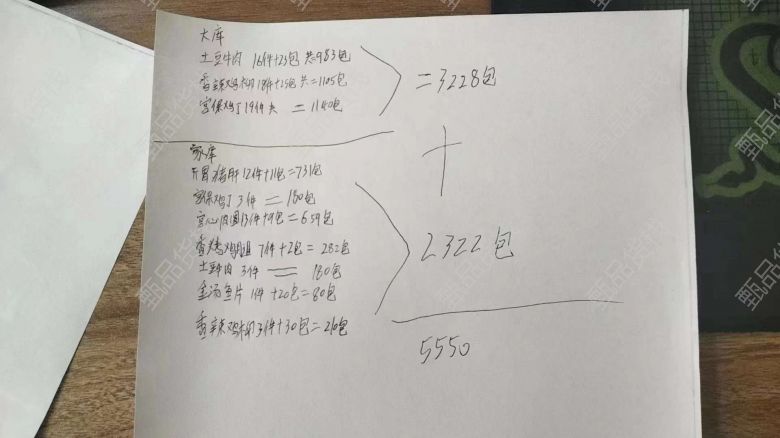 大库
土豆牛肉 16件+23包 共=983包
香辣鸡柳18件+25包 共=1105包
宫保鸡丁19件共 =1140包
=3228包
家库
开胃猪肝12件+11包=731包
宫保鸡丁 3件 =180包
空心肉圆13件+9包=659包
香烤鸡 7件+2包=282包
土豆牛肉 3件 =180包
金汤鱼片 1件+20包=80包
香辣鸡柳 3件+30包=210包
+
2322包
5550
甄品货栈